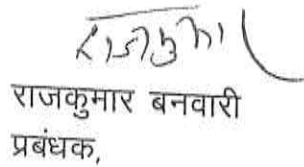 राजकुमार
राजकुमार बनवारी
प्रबंधक,